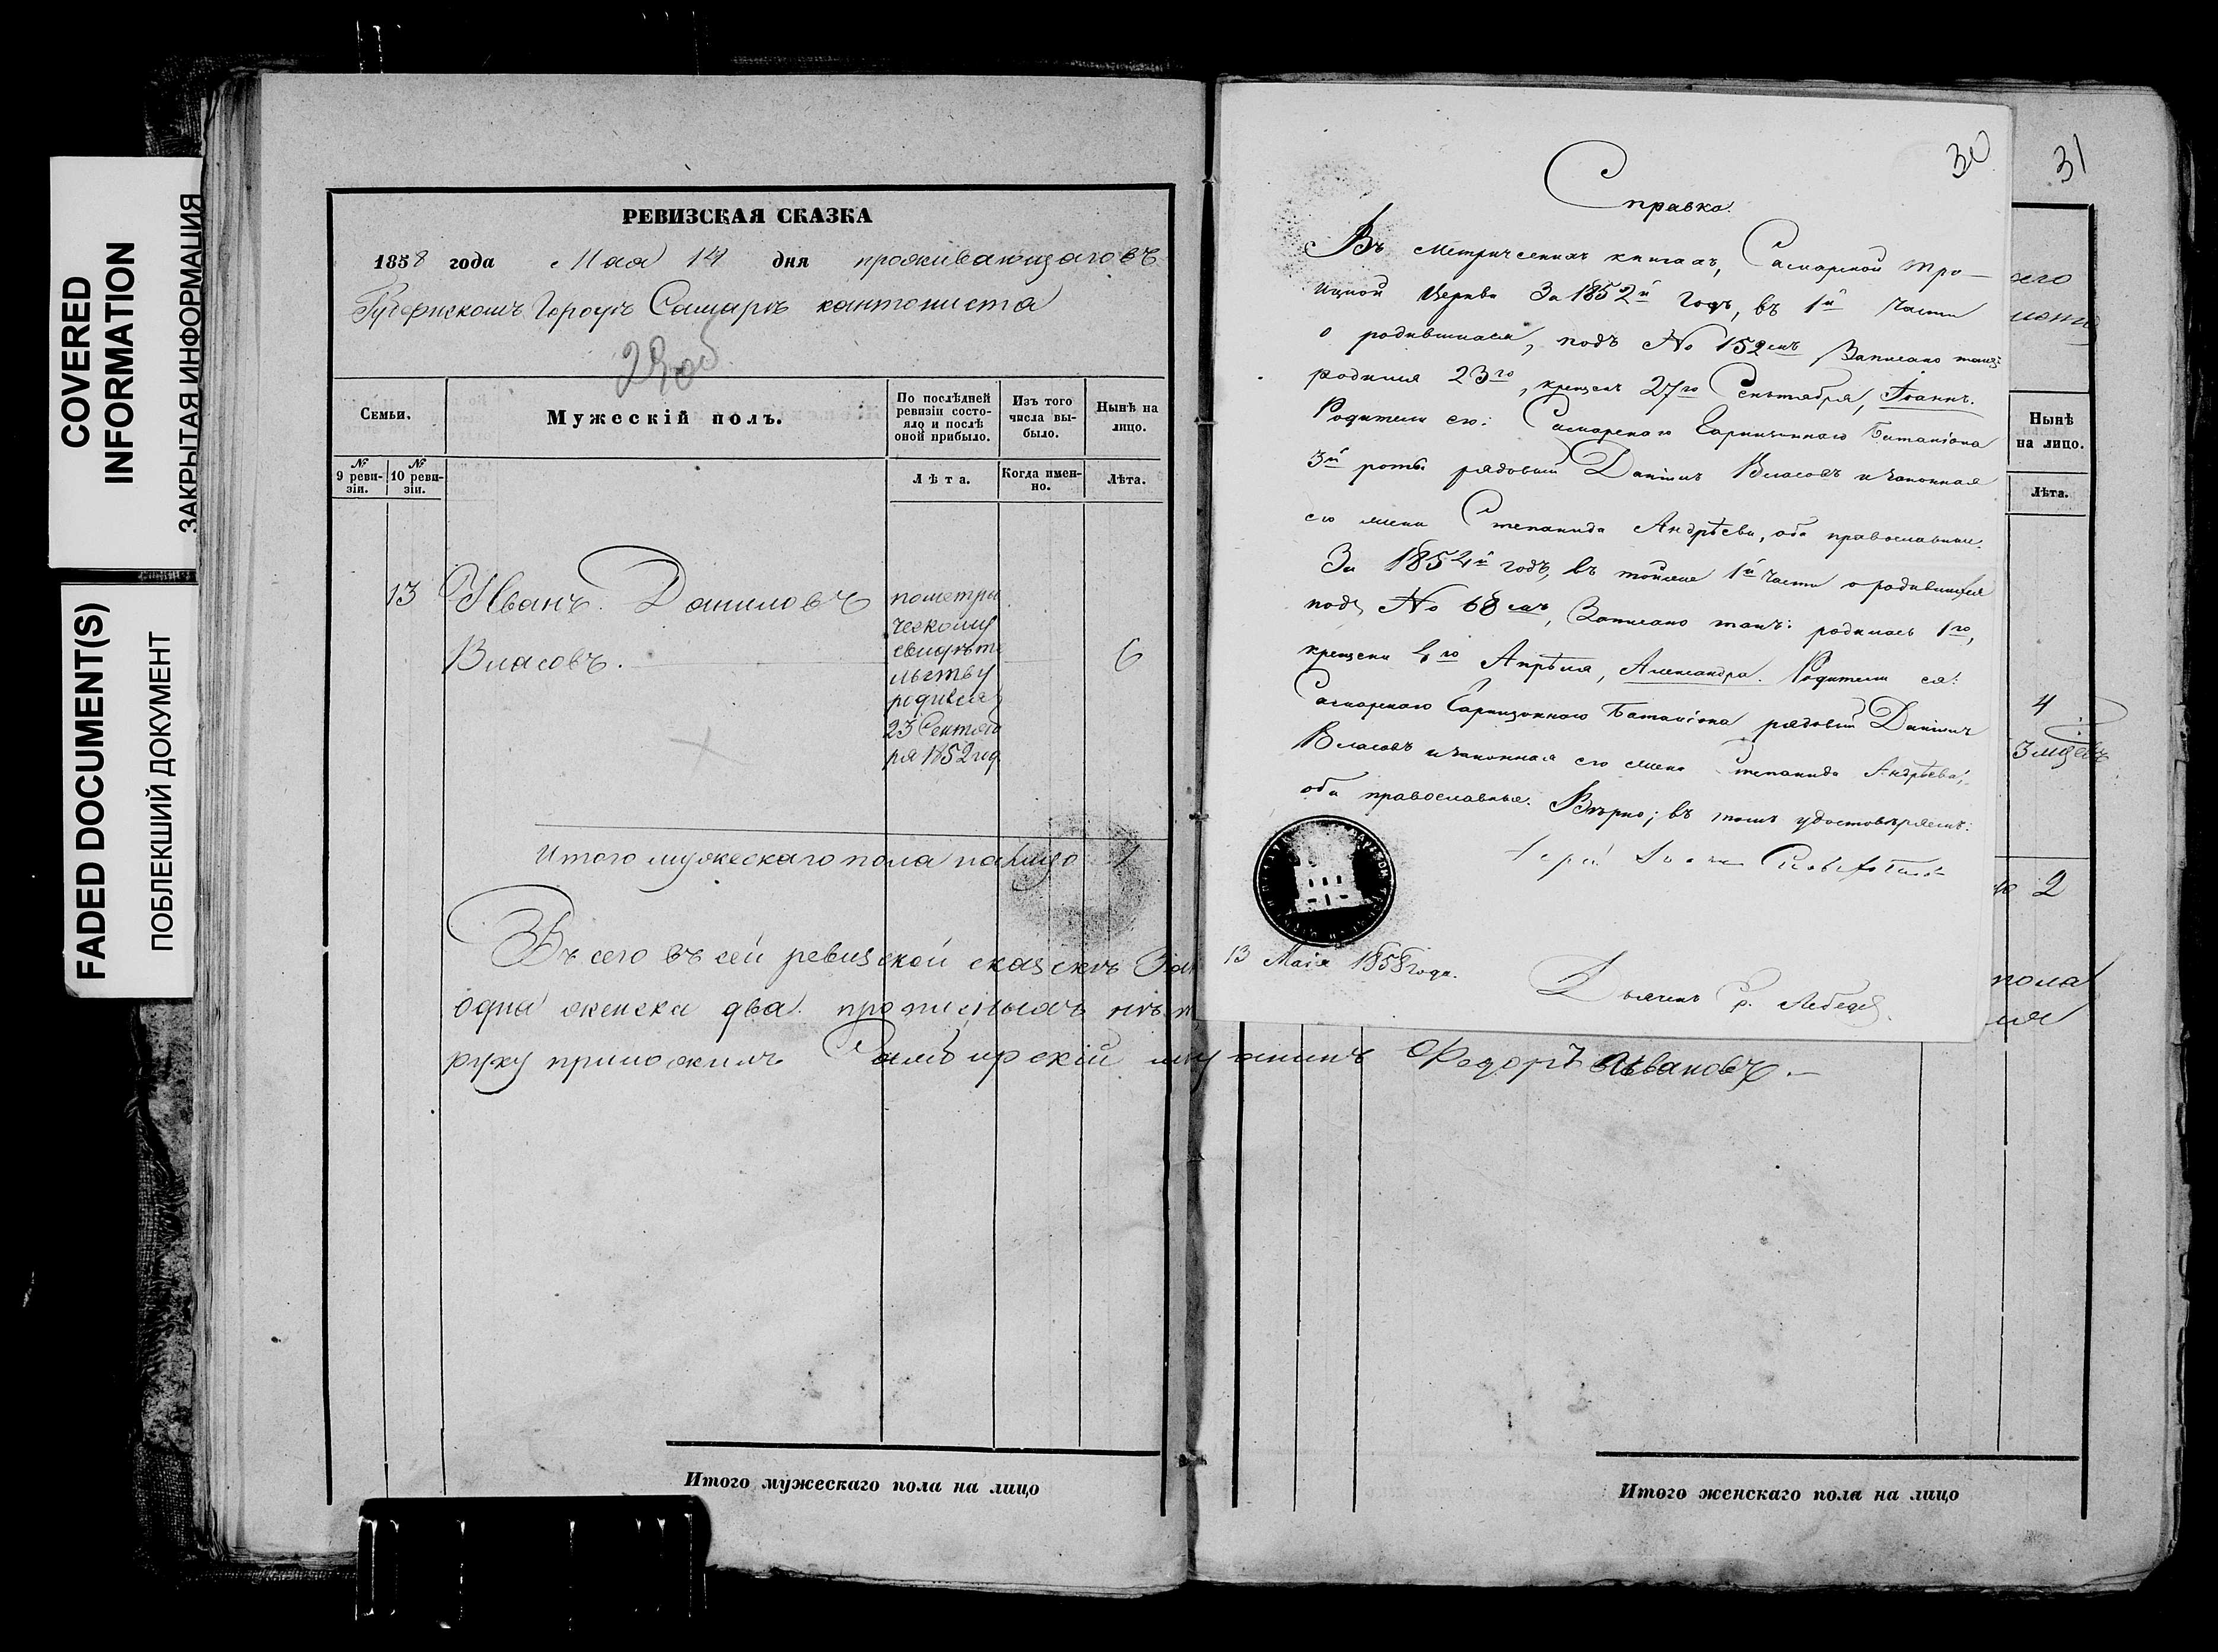 COVERED
INFORMATION
ЗАКРЫТАЯ ИНФОРМАЦИЯ
FADED DOCUMENT(S)
ПОБЛЕКШИЙ ДОКУМЕНТ
РЕВИЗСКАЯ СКАЗКА
1858 года Мая 14 дня проживающаго въ
Губернскомъ Городѣ Самарѣ кантониста
29 об.
Семьи.
Мужескій полъ.
По послѣдней
ревизіи состо-
яло и послѣ
оной прибыло.
Изъ того
числа вы-
было.
Нынѣ на
лицо.
№
9 реви-
зіи.
№
10 реви-
зіи.
Лѣта.
Когда имен-
но.
Лѣта.
13 Иванъ Даниловъ
Власовъ.
пометри
ческому
свидѣте
льству
родился
23 Сентяб
ря 1852 год
6
Итого мужескаго пола на лицо 1
Всего въ сей ревизской сказскѣ
одна женска два. прописныхъ нѣт
руку приложилъ Симбирскій Федоръ Ивановъ.
Итого мужескаго пола на лицо
30
31
Справка.
Въ метрическихъ книгахъ, Самарской Тро-
ицкой Церкви За 1852й годъ, въ 1й части
о родившихся, подъ № 152мъ Записано такъ:
родился 23го, крещенъ 27го Сентября, Іоаннъ.
Родители его: Самарскаго Гарнизоннаго Баталіона
3й роты рядовый Даніилъ Власовъ и законная
его жена Степанида Андрѣева, оба православные.
За 1854й годъ, въ тойже 1й части о родившихся
подъ № 68мъ, Записано такъ: родилась 1го,
крещена 4го Апрѣля, Александра. Родители ея:
Самарскаго Гарнизоннаго Баталіона рядовый Даніилъ
Власовъ и законная его жена Степанида Андрѣева,
оба православные. Вѣрно; въ томъ удостовѣряемъ:
13 Маія 1858 года.
Лебедев
его
Нынѣ
на лицо.
Лѣта.
4
3 мѣсяцъ
2
пола
Итого женскаго пола на лицо